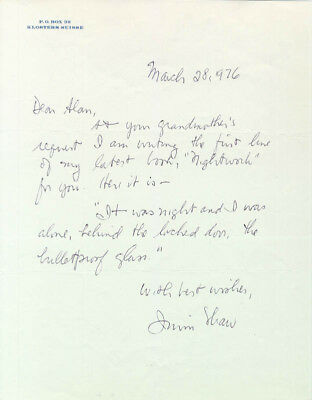 P.O BOX 39
KLOSTERS SUISSE
March 28, 976
Dear Alan,
At your grandmother's
request I am writing the first line
of my latest book, "Nightwork"
for you. Here it is—
"It was night and I was
alone, behind the locked door, the
bulletproof glass."
With best wishes,
Irwin Shaw